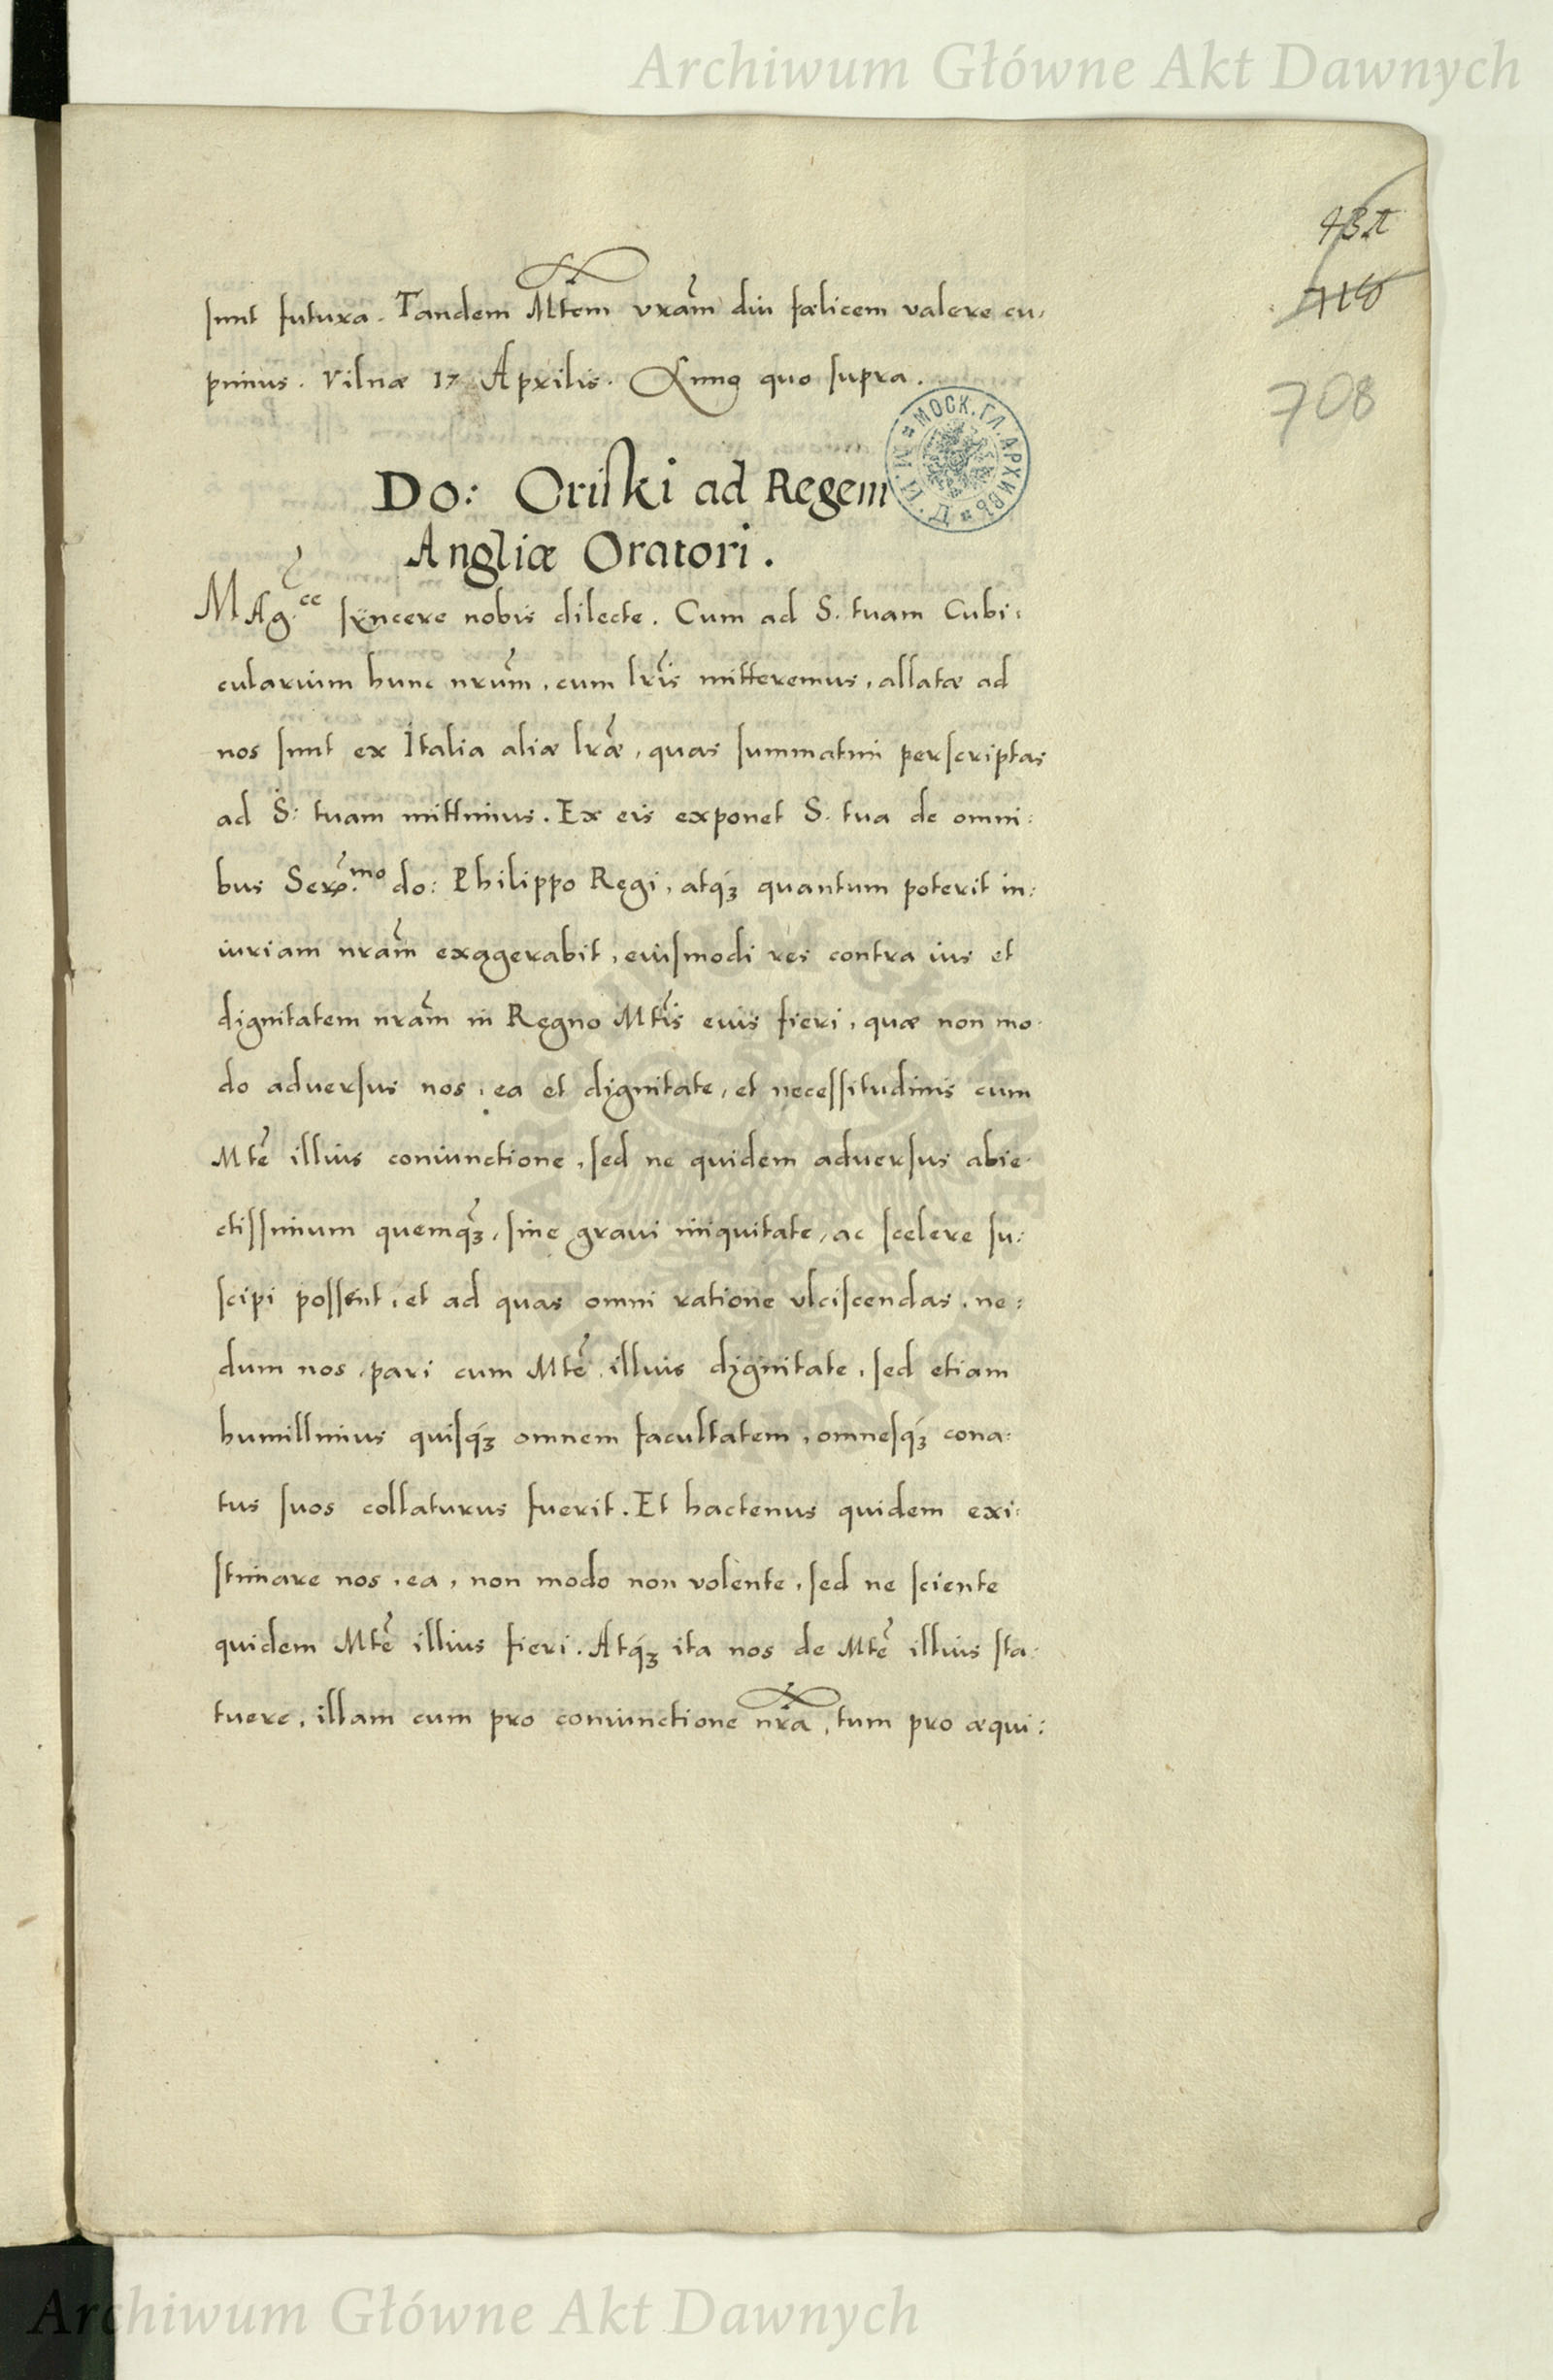 Archiwum Główne Akt Dawnych
432
716
708
sunt futura. Tandem Mtem vram diu fœlicem valere cu,
pimus. Vilnæ 17 Aprilis. Anno quo supra.
МОСК. ГЛ. АРХИВЪ М. И. Д.
Do: Oriski ad Regem
Angliæ Oratori.
MAg.ce syncere nobis dilecte. Cum ad S. tuam Cubi:
cularium hunc nrum, cum lris mitteremus, allatæ ad
nos sunt ex Italia aliæ lræ, quas summatim perscriptas
ad S: tuam mittimus. Ex eis exponet S. tua de omni:
bus Ser.mo do: Philippo Regi, atq3 quantum poterit in:
iuriam nram exagerabit, eiusmodi res contra ius et
dignitatem nram in Regno Mtis eius fieri, quæ non mo
do adversus nos, ea et dignitate, et necessitudinis cum
Mte illius coniunctione, sed ne quidem adversus abie
ctissimum quemq3, sine gravi iniquitate, ac scelere su:
scipi possent, et ad quas omni ratione ulciscendas, ne:
dum nos, pari cum Mte illius dignitate, sed etiam
humillimus quisq3 omnem facultatem, omnesq3 cona:
tus suos collaturus fuerit. Et hactenus quidem exi:
stimare nos, ea, non modo non volente, sed ne sciente
quidem Mte illius fieri. Atq3 ita nos de Mte illius sta
tuere, illam cum pro coniunctione nra, tum pro æqui:
Archiwum Główne Akt Dawnych